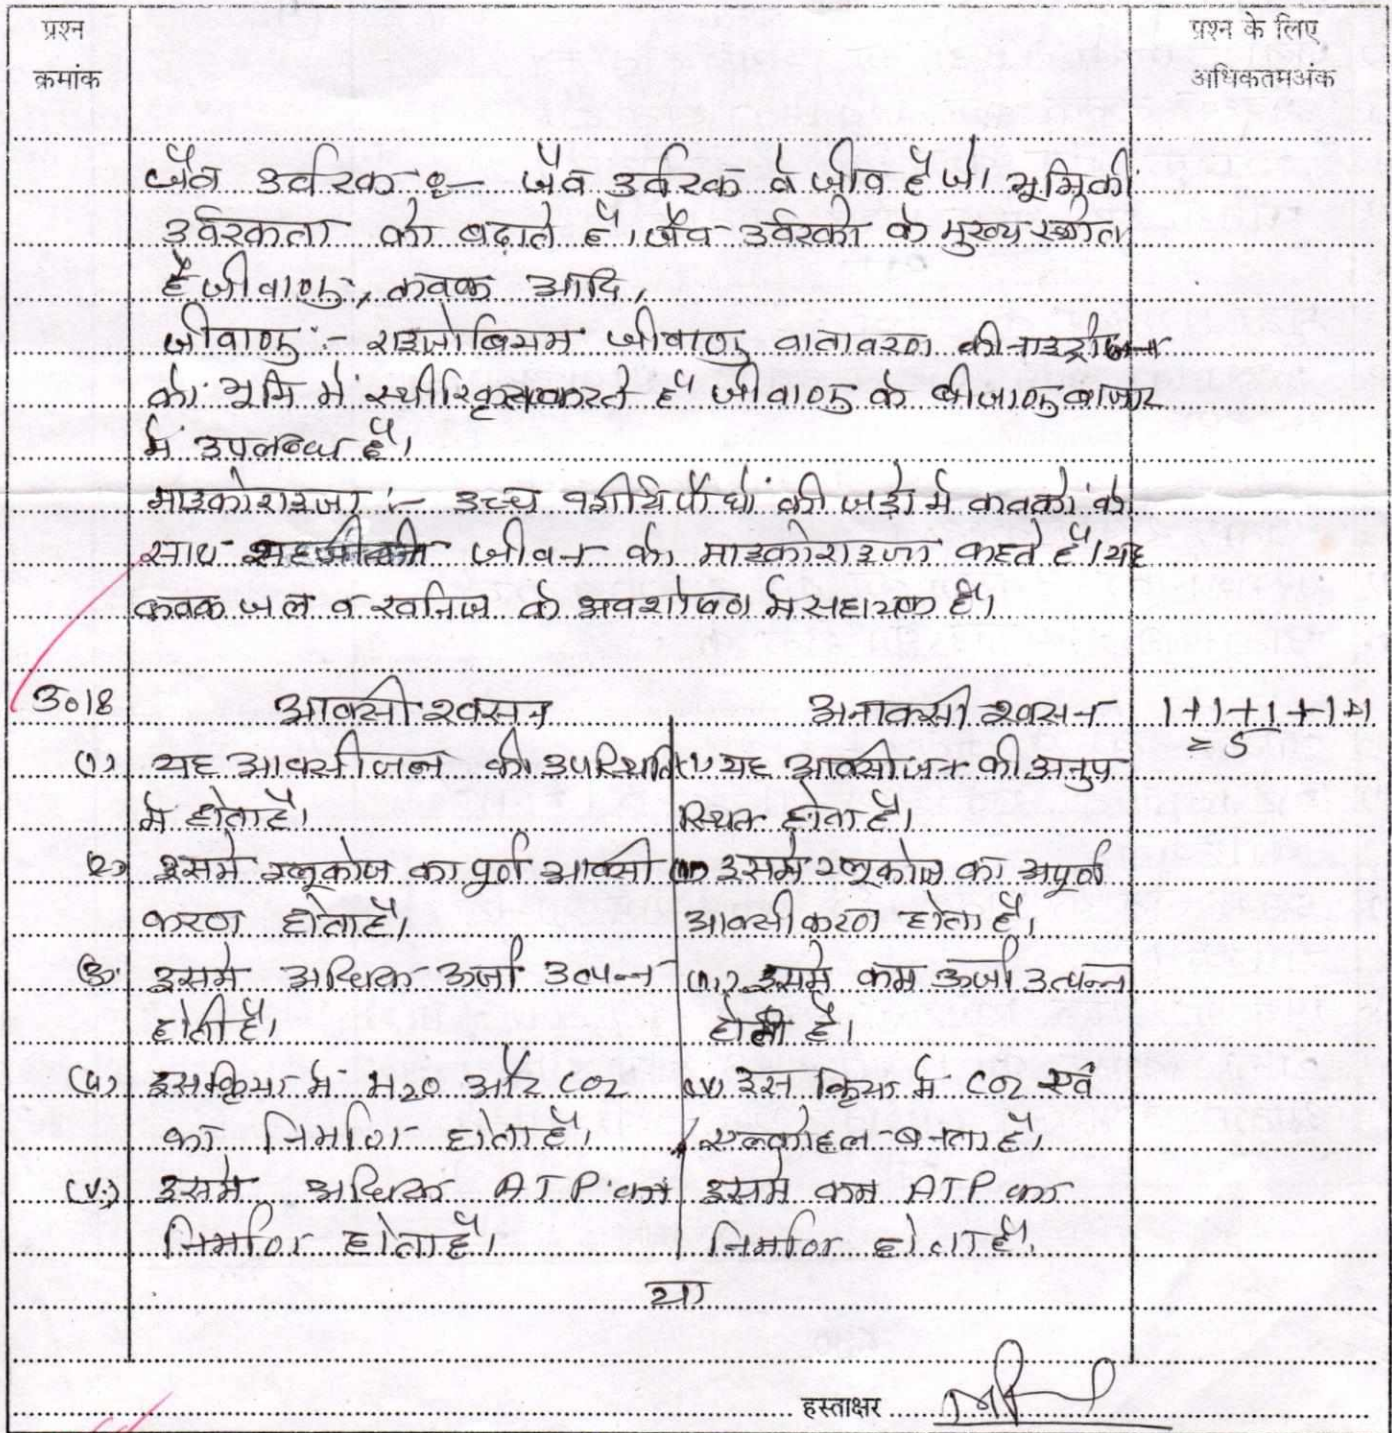 प्रश्न
क्रमांक
प्रश्न के लिए
अधिकतमअंक
जैव उर्वरक :— जैव उर्वरक वे जीव है जो भूमिकी
उर्वरकता को बढ़ाते है। जैव उर्वरको के मुख्य स्त्रोत
है जीवाणु, कवक आदि,
जीवाणु :- राइजोबियम जीवाणु वातावरण की नाइट्रोजन
को भूमि में करते है जीवाणु के बीजाणु बाजार
में उपलब्ध है।
माइकोराइजा :- उच्च वर्गीय पौधों की जड़ो में कवकों के
साथ जीवन को माइकोराइजा कहते है। यह
कवक जल व खनिज के अवशोषण में सहायक है।
उ०18 आक्सी श्वसन अनाक्सी श्वसन 1+1+1+1+1
= 5
(1) यह आक्सीजन की उपस्थिति यह आक्सीजन की अनुप
मे होता है। स्थित होता है।
(2) इसमे ग्लूकोज का पूर्ण आक्सी इसमे ग्लूकोज का अपूर्ण
करण होता है। आक्सीकरण होता है।
(3) इसमे अधिक ऊर्जा उत्पन्न इसमे कम ऊर्जा उत्पन्न
होती है। होती है।
(4) इस क्रिया में H20 और CO2 (IV) इस क्रिया में CO2 एवं
का निर्माण होता है। एल्कोहल बनता है।
(V) इसमे अधिक ATP का इसमे कम ATP का
निर्माण होता है। निर्माण होता है।
या
हस्ताक्षर